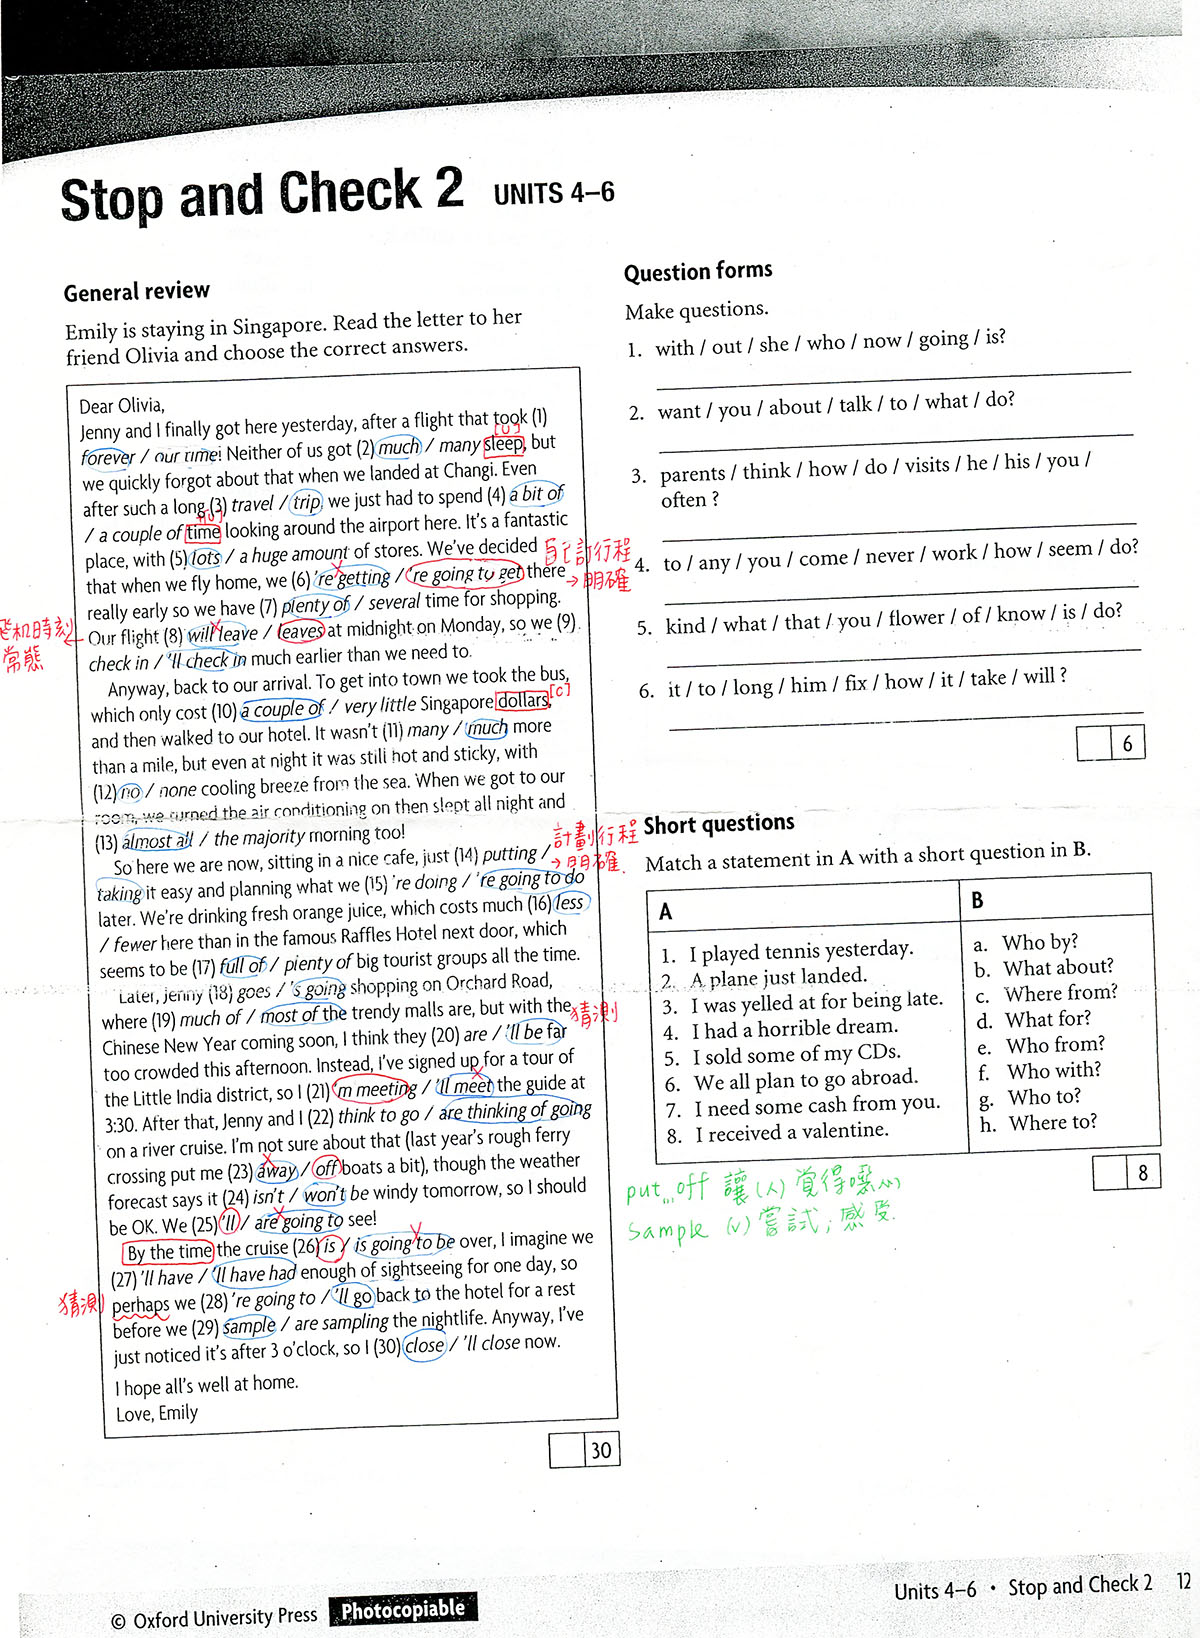 Stop and Check 2 UNITS 4–6
General review
Emily is staying in Singapore. Read the letter to her
friend Olivia and choose the correct answers.
Dear Olivia,
Jenny and I finally got here yesterday, after a flight that took (1)
[U]
forever / our time! Neither of us got (2) much / many sleep, but
we quickly forgot about that when we landed at Changi. Even
after such a long (3) travel / trip, we just had to spend (4) a bit of
[U]
/ a couple of time looking around the airport here. It's a fantastic
place, with (5) lots / a huge amount of stores. We've decided
that when we fly home, we (6) 're getting / 're going to get there
really early so we have (7) plenty of / several time for shopping.
Our flight (8) will leave / leaves at midnight on Monday, so we (9)
check in / 'll check in much earlier than we need to.
自己訂行程
→明確
飛机時刻
常態
Anyway, back to our arrival. To get into town we took the bus,
which only cost (10) a couple of / very little Singapore dollars,
[C]
and then walked to our hotel. It wasn't (11) many / much more
than a mile, but even at night it was still hot and sticky, with
(12) no / none cooling breeze from the sea. When we got to our
room, we turned the air conditioning on then slept all night and
(13) almost all / the majority morning too!
So here we are now, sitting in a nice cafe, just (14) putting /
taking it easy and planning what we (15) 're doing / 're going to do
later. We're drinking fresh orange juice, which costs much (16) less
/ fewer here than in the famous Raffles Hotel next door, which
seems to be (17) full of / plenty of big tourist groups all the time.
計劃行程
→明確
Later, Jenny (18) goes / 's going shopping on Orchard Road,
where (19) much of / most of the trendy malls are, but with the
Chinese New Year coming soon, I think they (20) are / 'll be far
too crowded this afternoon. Instead, I've signed up for a tour of
the Little India district, so I (21) 'm meeting / 'll meet the guide at
3:30. After that, Jenny and I (22) think to go / are thinking of going
on a river cruise. I'm not sure about that (last year's rough ferry
crossing put me (23) away / off boats a bit), though the weather
forecast says it (24) isn't / won't be windy tomorrow, so I should
be OK. We (25) 'll / are going to see!
猜測
By the time the cruise (26) is / is going to be over, I imagine we
(27) 'll have / 'll have had enough of sightseeing for one day, so
perhaps we (28) 're going to / 'll go back to the hotel for a rest
before we (29) sample / are sampling the nightlife. Anyway, I've
just noticed it's after 3 o'clock, so I (30) close / 'll close now.
猜測
I hope all's well at home.
Love, Emily
30
Question forms
Make questions.
1. with / out / she / who / now / going / is?
2. want / you / about / talk / to / what / do?
3. parents / think / how / do / visits / he / his / you /
often ?
4. to / any / you / come / never / work / how / seem / do?
5. kind / what / that / you / flower / of / know / is / do?
6. it / to / long / him / fix / how / it / take / will ?
6
Short questions
Match a statement in A with a short question in B.
A
1. I played tennis yesterday.
2. A plane just landed.
3. I was yelled at for being late.
4. I had a horrible dream.
5. I sold some of my CDs.
6. We all plan to go abroad.
7. I need some cash from you.
8. I received a valentine.
B
a. Who by?
b. What about?
c. Where from?
d. What for?
e. Who from?
f. Who with?
g. Who to?
h. Where to?
8
put...off 讓(人)覺得噁心
sample (v) 嘗試；感受.
Units 4–6 • Stop and Check 2 12
© Oxford University Press Photocopiable